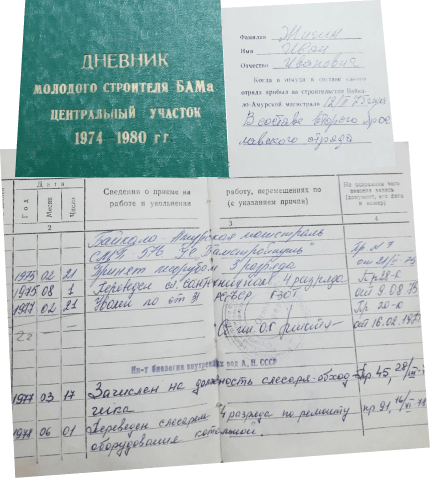 ДНЕВНИК
МОЛОДОГО СТРОИТЕЛЯ БАМа
ЦЕНТРАЛЬНЫЙ УЧАСТОК
1974 - 1980 гг.
Фамилия Жилин
Имя Иван
Отчество Иванович
Когда и откуда в составе какого
отряда прибыл на строительство Байка-
ло-Амурской магистрали 12/II 75 года
В составе второго Яро
славского отряда
Дата
Год Месяц Число
Сведения о приеме на работу, перемещениях по
работе и увольнении (с указанием причин)
На основании чего
внесена запись
(документ, его дата
и номер)
2 3 4
Байкало Амурская магистраль
1975 02 21 Принят маляром 3 разряда
от 21/II 75
1975 08 1 Переведен сл. сантехником 4 разряда Пр 28-к
от 9.08 75
1977 02 21 Уволен по ст 31 КЗОТ Пр 20-к
от 16.02.197
Ин-т биологии внутренних вод А. Н. СССР
1977 03 17 Зачислен на должность слесаря-обход
чика Пр. 45, 28/III-77
1978 06 01 Переведен слесарем 4 разряда по ремонту пр. 91, 16/VI 78
оборудования котельной.